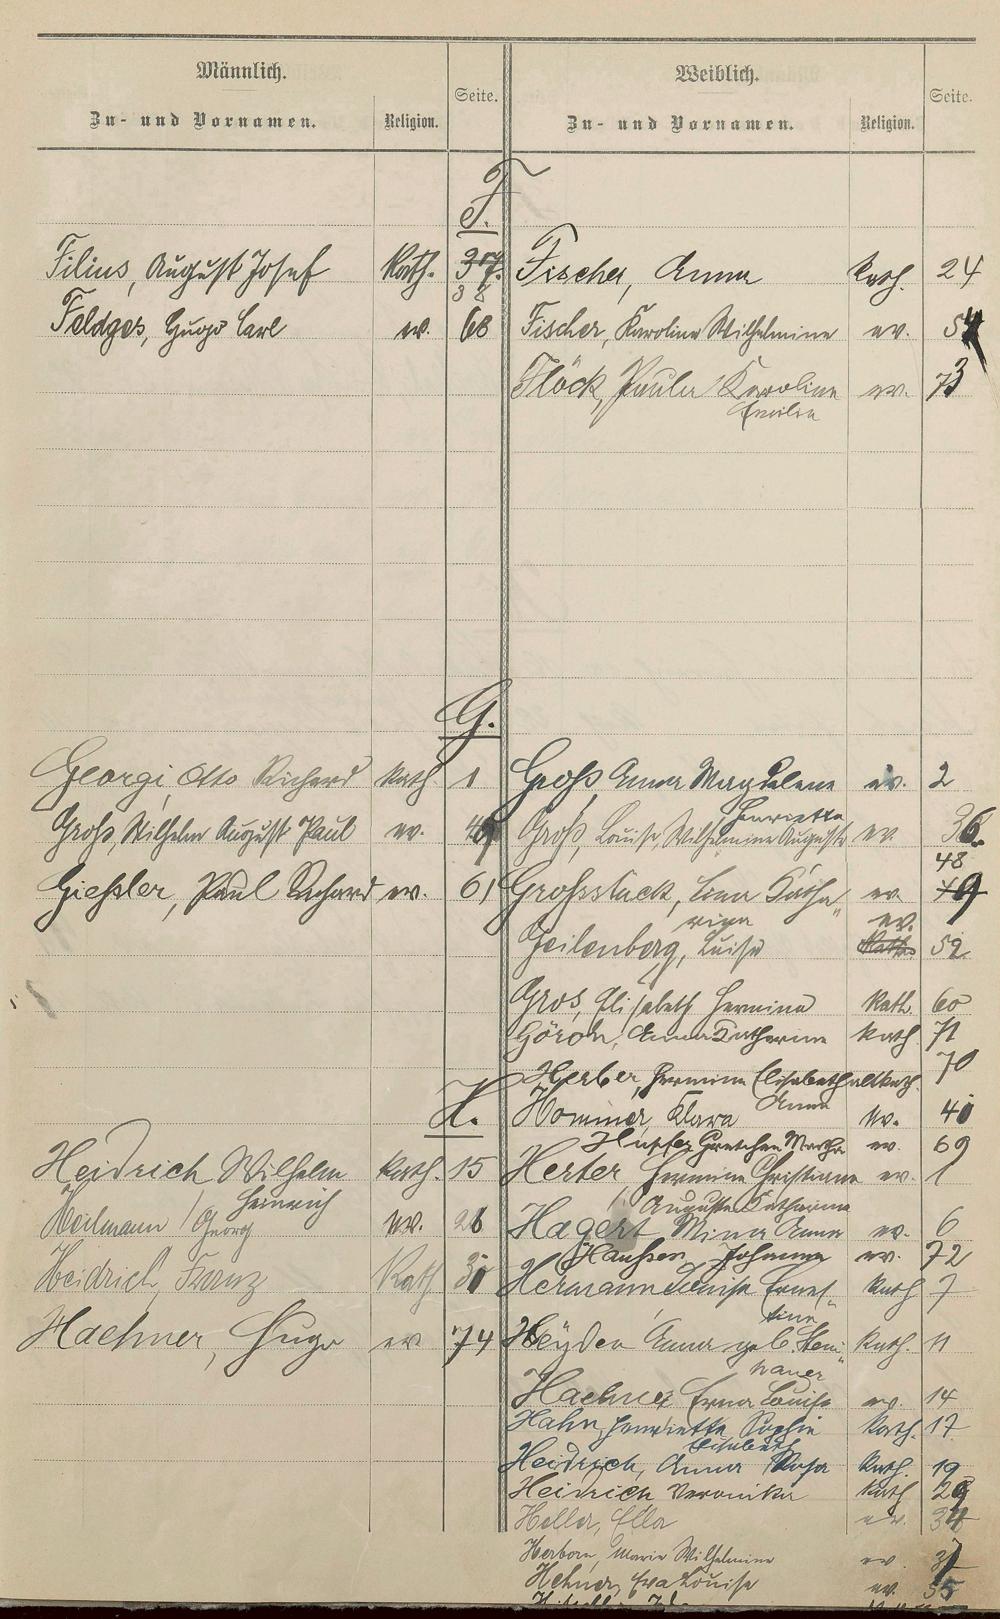 Männlich.
Zu- und Vornamen.
Religion.
Seite.
Weiblich.
Zu- und Vornamen.
Religion.
Seite.
F.
Filius, August Josef Kath. 37.
38
Feldges, Hugo Carl ev. 68
Fischer, Anna Kath. 24
Fischer, Karoline Wilhelmine ev. 54
Flöck, Paula Karoline ev. 73
Emilie
G.
Georgi, Otto Richard Kath. 1
Groß, Wilhelm August Paul ev.
Gießler, Paul Richard ev. 61
Groß, Anna Magdalene ev. 2
Henriette
Groß, Louise, Wilhelmine Auguste ev. 36.
48
Grossstuck, Lina Katha„ ev. 49
rina ev.
Geilenberg, Luise Kath. 52
Gros, Elisabeth Hermine Kath. 60
Anna Katharine Kath 71
Herber, Hermine Elisabeth altkath. 70
H.
Heidrich Wilhelm Kath. 15
Heinrich
Heilmann Georg ev. 26
Heidrich, Franz Kath 30
Haehner, Hugo ev 74
Anna
Hommer, Klara ev. 40
Gretchen Martha ev. 69
Herter, Hermine Christiane ev. 1
Auguste Katharina
Hagert Mina Anna ev. 6
Hansen, Johanna ev. 72
Hermann Louise Ernes„ Kath 7
tine
Heyden Anna geb. Stein„ Kath. 11
hauer
Haehner Erna Louise ev. 14
Hahn, Henriette Sophie Kath. 17
Elisabeth
Heidrich, Anna Rosa Kath. 19
Heidrich Veronika Kath 29
Heller, Ella ev. 34
Herborn, Marie Wilhelmine ev.
Hehner, Eva Louise ev. 55